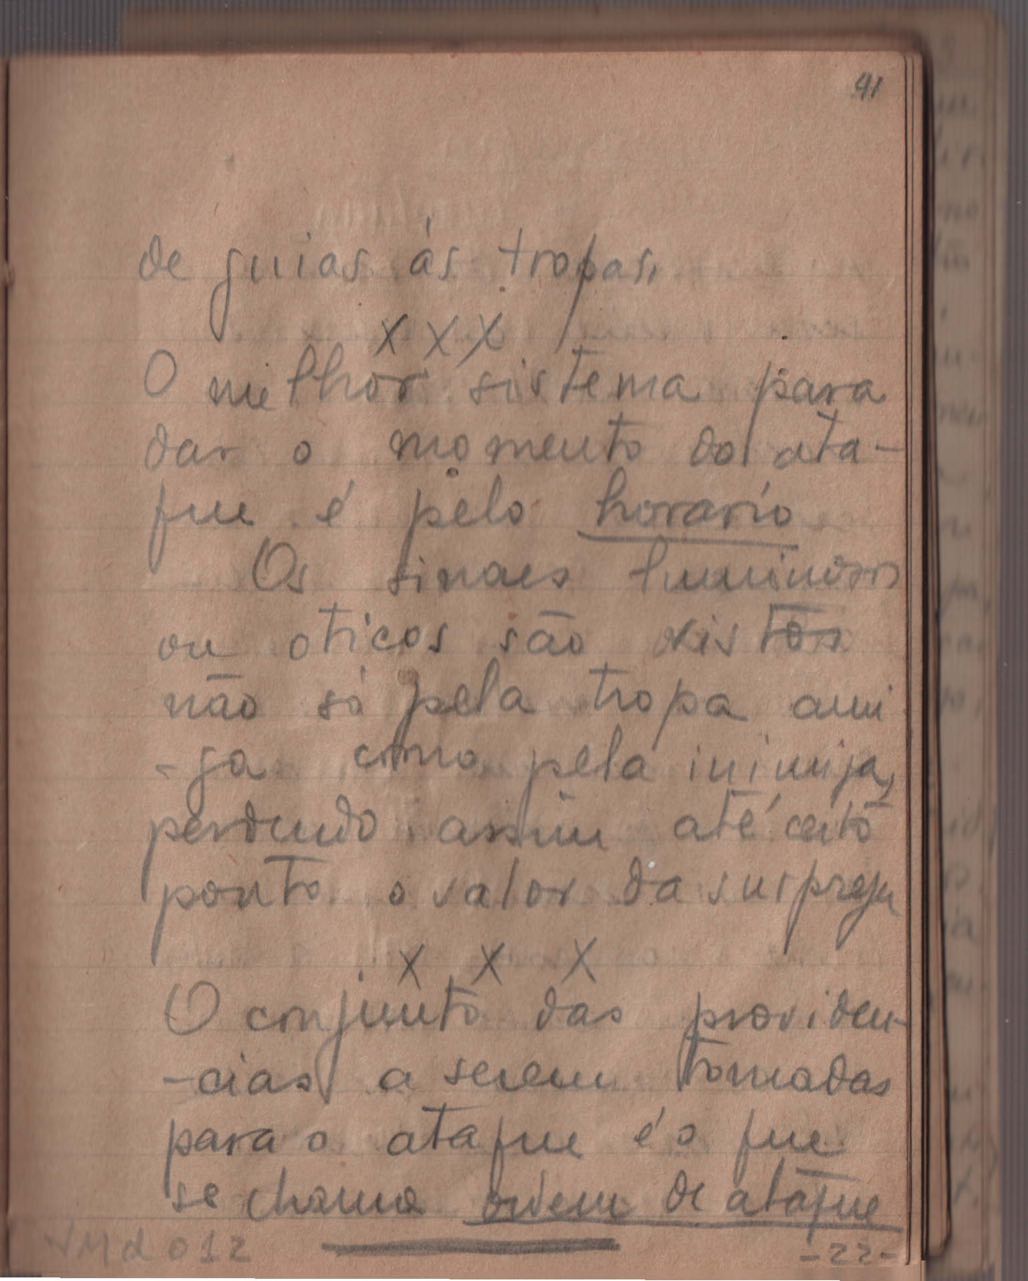 91
de guias ás tropas.
x x x
O milhor sistema para
dar o momento do ata-
que é pelo horario
Os sinaes luminosos
ou oticos são vistos
não só pela tropa ami
-ga como pela inimiga,
perdendo assim até certo
ponto o valor da surpreza
x x x
O conjunto das providen-
-cias a serem tomadas
para o ataque é o que
se chama ordem de ataque
VMd012
-22-